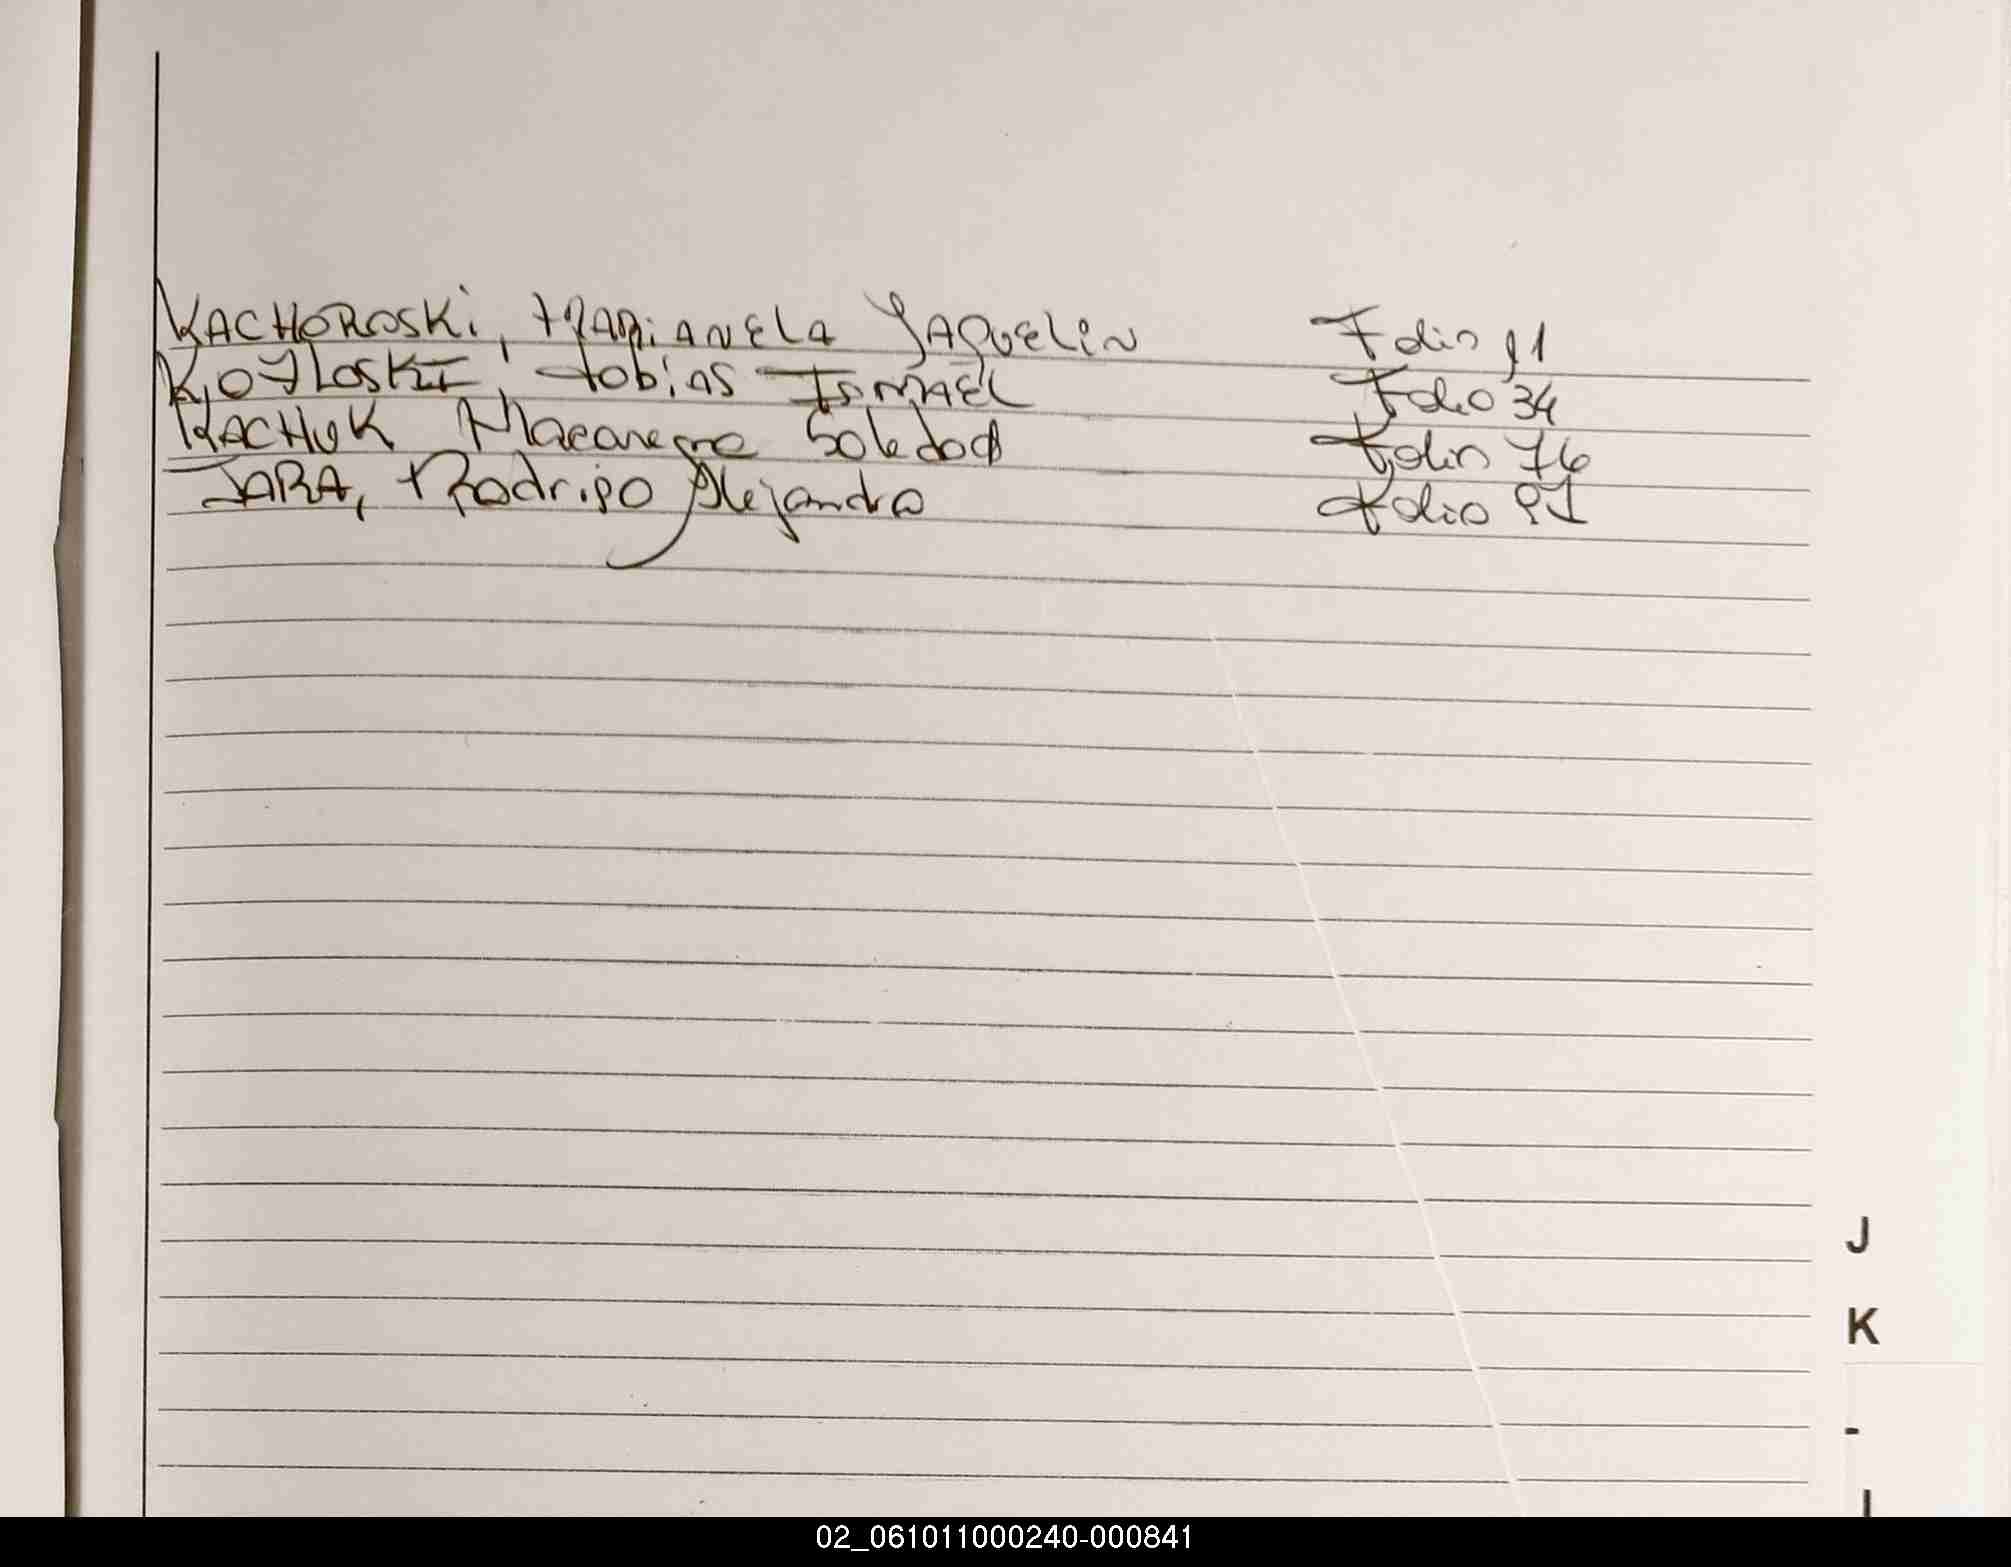 KACHOROSKi, MARiANELA YAQUELIN Folio 11
KOJLOSKI, tobias ISMAEL Folio 34
KACHUK Macarena Soledad Folio 76
JARA, Rodrigo Alejandro Folio 91
J
K
-
02_061011000240-000841